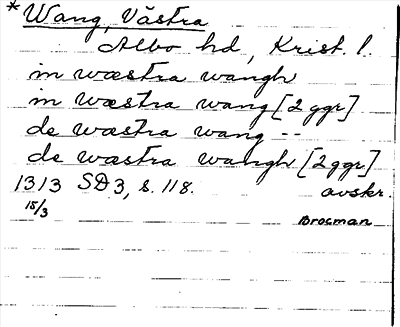 * Wang, Västra
Albo hd, Krist. l.
in wæstra wangh
in wæstra wang [2 ggr]
de wæstra wang --
de wæstra wangh [2 ggr]
1313 SD 3, s. 118. avskr.
15/3
Brosman